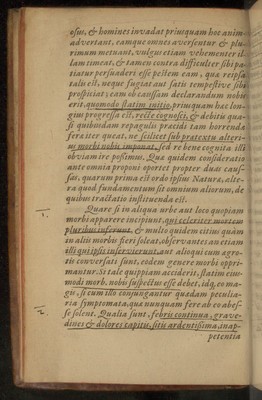 osus, & homines invadat priusquam hoc anim-
advertant, eamque omnes aversentur & plu-
rimum metuant, vulgus etiam vehementer il-
lam timeat, & tamen contra difficulter sibi pa-
tiatur persuaderi esse pestem eam, quæ reipsa
talis est, neque fugiat aut satis tempestive sibi
prospiciat; eam ob caussam declarandum nobis
erit, quomodo statim initio, priusquam hæc lon-
gius progressa est, recte cognosci, & debitis qua-
si quibusdam repagulis præcidi tam horrenda
fera iter queat, ne scilicet sub prætextu alteri-
us morbi nobis imponat, sed re bene cognita illi
obviam ire possimus. Quæ quidem consideratio
ante omnia proponi oportet propter duas cau-
sas, quarum prima est ordo ipsius Naturæ, alte-
ra quod fundamentum sit omnium aliorum, de
quibus tractatio instituenda est.
Quare si in aliqua urbe aut loco quopiam
1. morbi apparere incipiunt, qui celeriter mortem
pluribus inferunt, & multo quidem citius quam
in aliis morbis fieri soleat, observantes an etiam
illi qui ipsis inservierunt, aut alioqui cum agro-
tis conversati sunt, eodem genere morbi oppri-
mantur. Si tale quippiam acciderit, statim eius-
modi morb. nobis suspectus esse debet, idq, eo ma-
2. gis, si cum illo conjungantur quædam peculia-
ria symptomata, quæ nunquam fere ab eo abes-
se solent. Qualia sunt, febris continua, grave-
dines & dolores capitis, sitis ardentissima, inap-
petentia